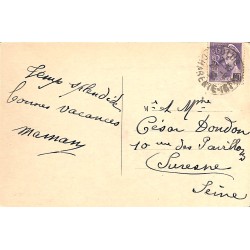 Temps splendide
bonnes vacances
maman
M et Mme
César Dondon
10 rue des Pavillons
Suresne
Seine
CHARENTE-INF